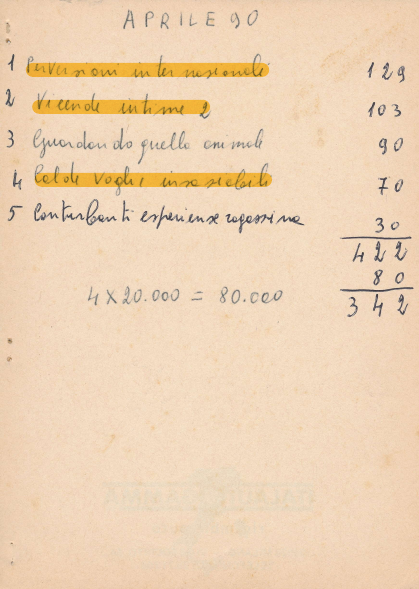 APRILE 90
1 Perversioni internazionali 129
2 Vicende intime 2 103
3 Guardando quello animale 90
4 Calde voglie insaziabili 70
5 Conturbanti esperienze ragazzina 30
422
80
4 X 20.000 = 80.000
342